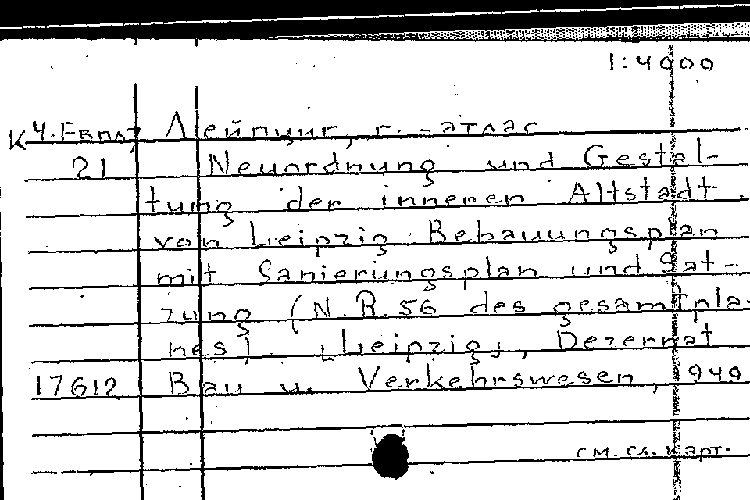 1:4000
К 4.Евпл7 Лейпциг, г. - атлас
21 Neuordnung und Gestal-
tung der inneren Altstadt
von Leipzig. Bebauungsplan
mit Sanierungsplan und Sat-
zung (N. R. 56 des gesamtpla-
nes). [Leipzig], Dezernat
17612 Bau u. Verkehrswesen, 949
см. сл. карт.